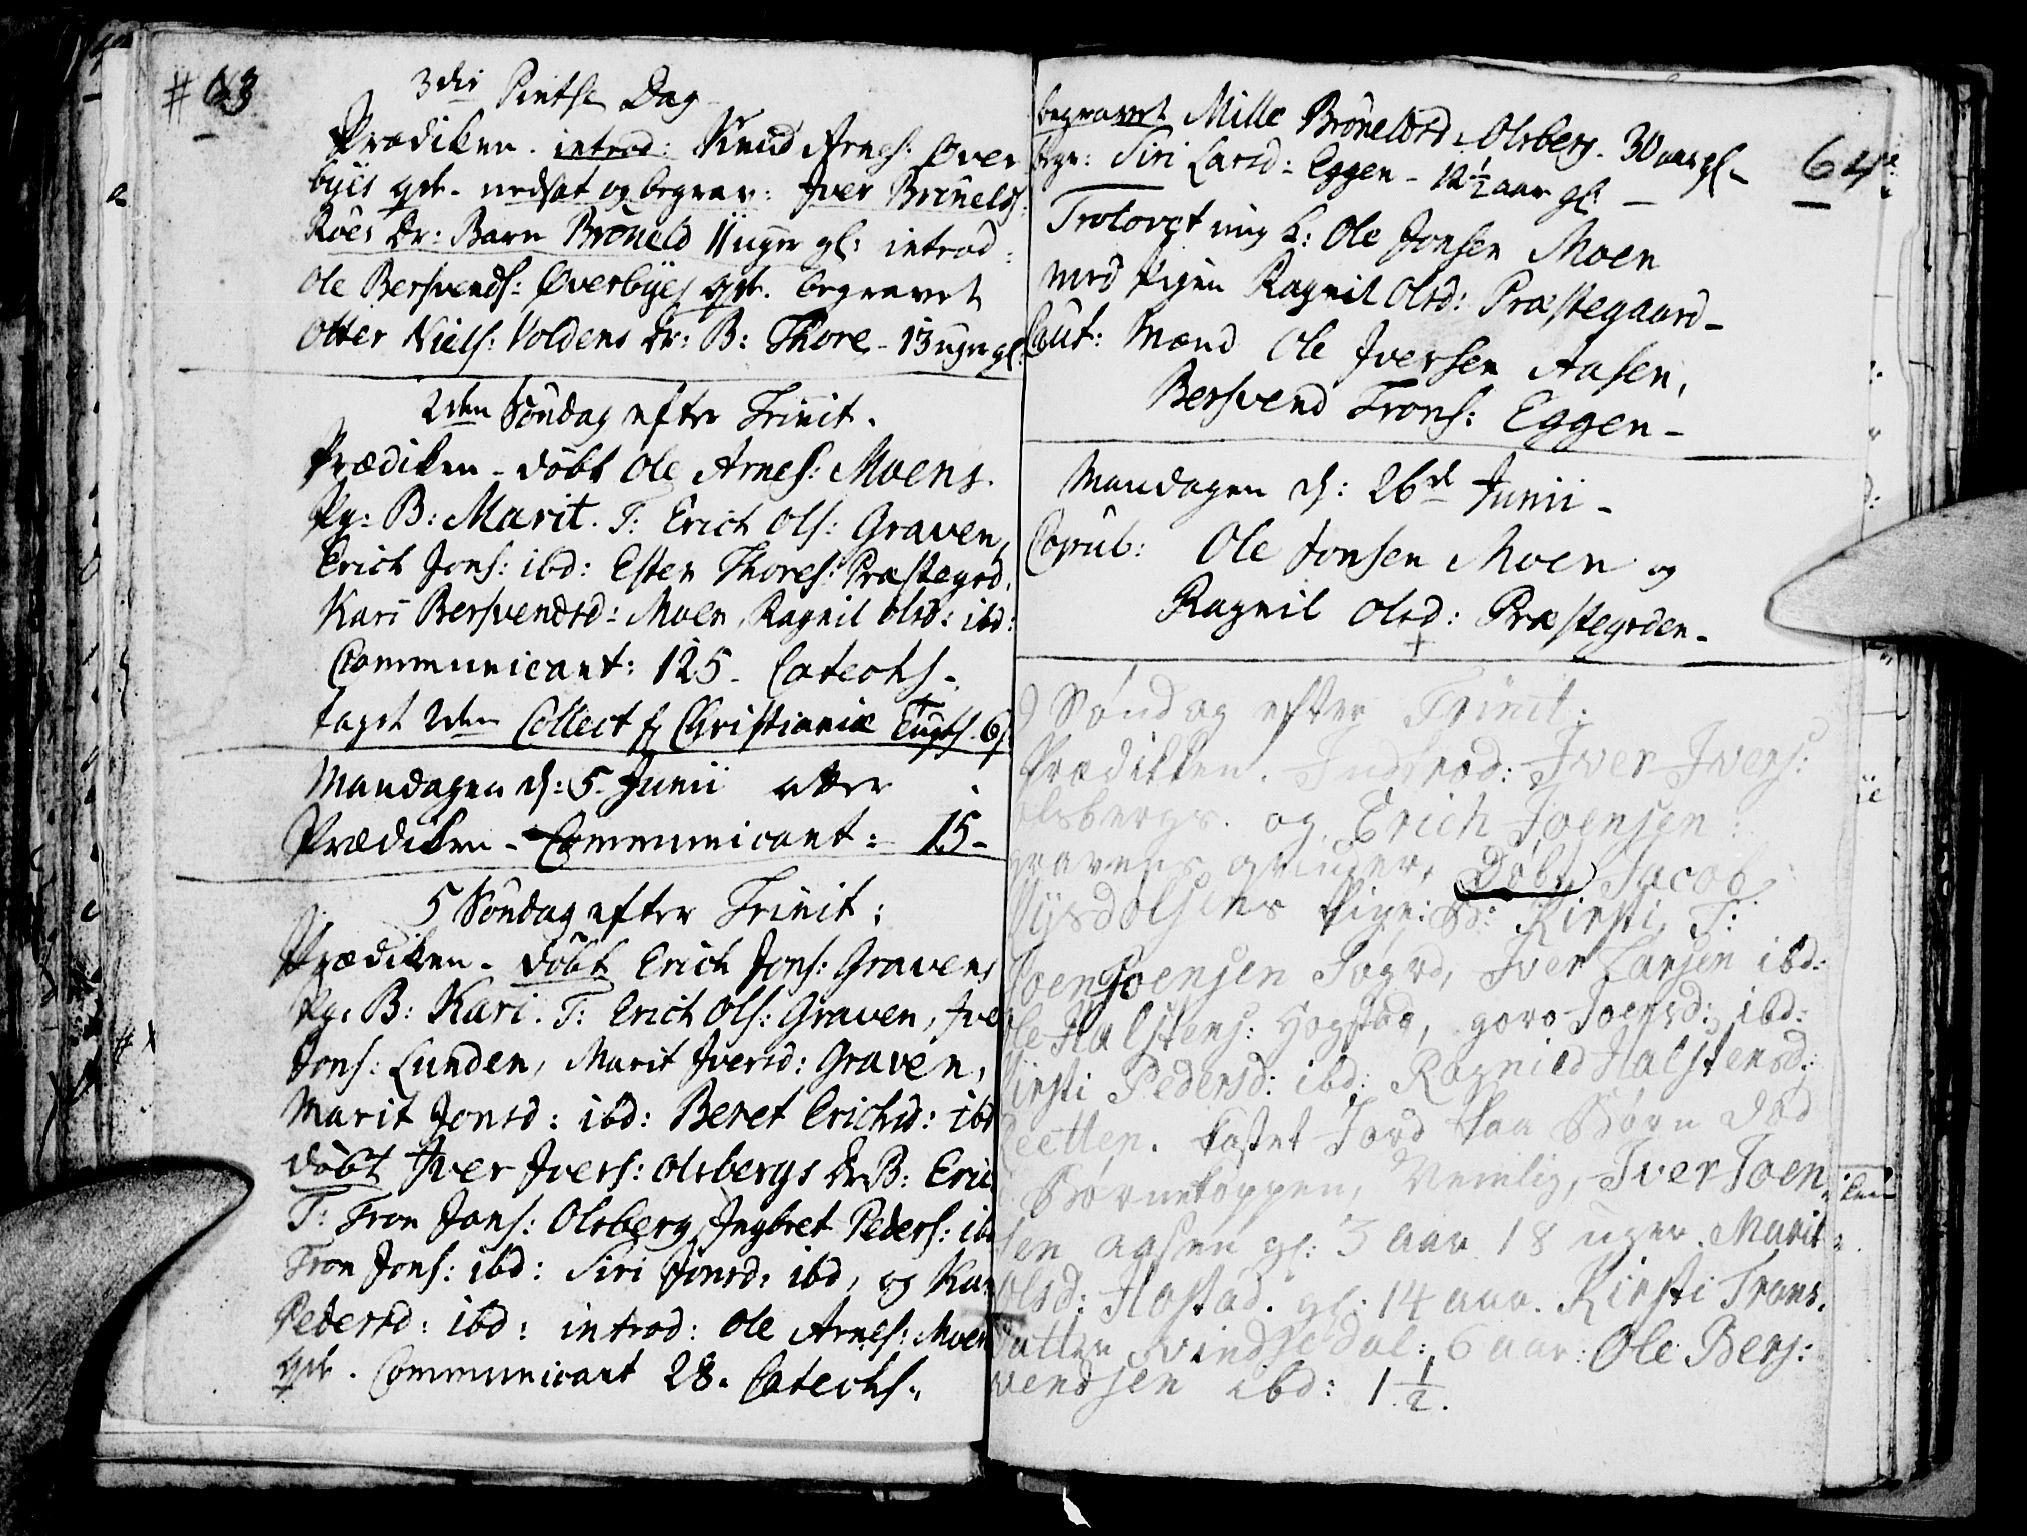 # 63
3die Pintse Dag
Prædiken. introd: Knud Arnes: Over
byes qv. nedsat og begrav: Iver Brúnelds:
Røes Dr: Barn Brúneld 11 uger gl: introd:
Ole Bersvends: Overbyes qv. begravet
Otter Niels: Voldens Dr: B: Thore 13 ugr gl:
2den Søndag efter Trinit.
Prædiken - døbt Ole Arnes: Moens.
Pg: B: Marit. T: Erich Ols: Graven,
Erich Jons: ibd: Esten Thores: Præstegrd.
Kari Bersvendsd: Moen, Ragnil Olsd: ibd:
Communicant: 125 - Catechs -
taget 2den Collect f Christianiæ
Mandagen d: 5 Junii atter
Prædiken - Communicant: 15 -
5 Søndag efter Trinit:
Prædiken - døbt Erich Jons: Gravens
Pg: B: Kari. T: Erich Ols: Graven, Iver
Jons: Lunden, Marit Iversd: Graven,
Marit Jonsd: ibd: Beret Erichsd: ibd
døbt Iver Ivers: Olsbergs Dr: B: Eric
T: Tron Jons: Olsberg, Ingbret Peders: ibd
Tron Jons: ibd: Siri Jonsd: ibd, og Kari
Pedersd: ibd: introd: Ole Arnes: Moens
qv. Communicant 28. Catechs.
64
begravet Mille Brúneldsd: Olsberg. 30 aar gl -
begr: Siri Larsd: Eggen - 12 1/2 aar gl: -
Trolovet ung k: Ole Jonsen Moen
med Pigen Ragnil Olsd: Præstegaard -
Caut: Mænd Ole Iversen Aasen,
Bersvend Trons: Eggen -
Mandagen d: 26d Junii -
Copul: Ole Jonsen Moen og
Ragnil Olsd: Præstegrden -
Søndag efter Trinit:
Prædikken. Indtrod: Iver Ivers:
Olsbergs. og Erich Joensen
gravens qvinder, Døbt Jacob
Pige: B: Kirsti, T:
Joen Joensen Iver Larsen ibd:
Ole Halstens: Hogstad, goro Joensd: ibd:
Kirsti Pedersd: ibd: Ragnild Halstensd:
kastet Jord paa Børn død
Børnekoppen, Nemlig, Iver Joen-
sen aasen gl: 3 aar 18 uger. Marit
Olsd: Hastad. gl: 14 aar. Kirsti Trons.
Datter Vindsedal: 6 aar: Ole Bers:
vendsen ibd: 1 1/2.